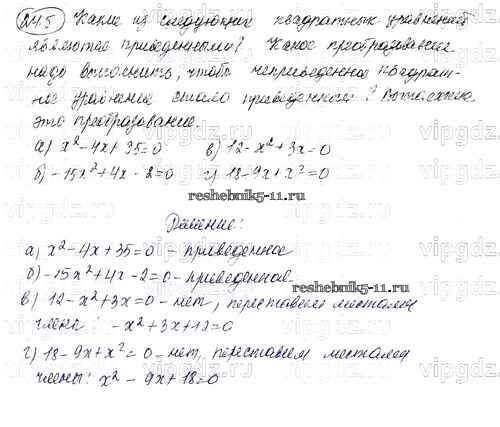 24.5 Какие из следующих квадратных уравнений
являются приведенными? Какое преобразование
надо выполнить, чтобы неприведенное квадрат-
ное уравнение стало приведенным? Выполните
это преобразование.
а) x² - 4x + 35 = 0 в) 12 - x² + 3x = 0
б) -15x² + 4x - 2 = 0 г) 18 - 9x + x² = 0
reshebnik5-11.ru
reshebnik5-11.ru
Решение:
а) x² - 4x + 35 = 0 - приведенное
б) -15x² + 4x - 2 = 0 - приведенное
reshebnik5-11.ru
в) 12 - x² + 3x = 0 - нет, переставим местами
члены: -x² + 3x + 12 = 0
г) 18 - 9x + x² = 0 - нет, переставим местами
члены: x² - 9x + 18 = 0
vipgdz